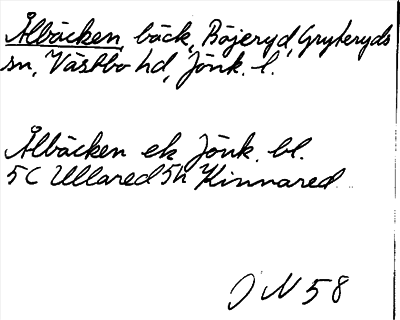 Ålbäcken, bäck, Böjeryd, Gryteryds
sn, Västbo hd, Jönk. l.
Ålbäcken ek Jönk. bl.
5C Ullared 5h Kinnared
J N 58